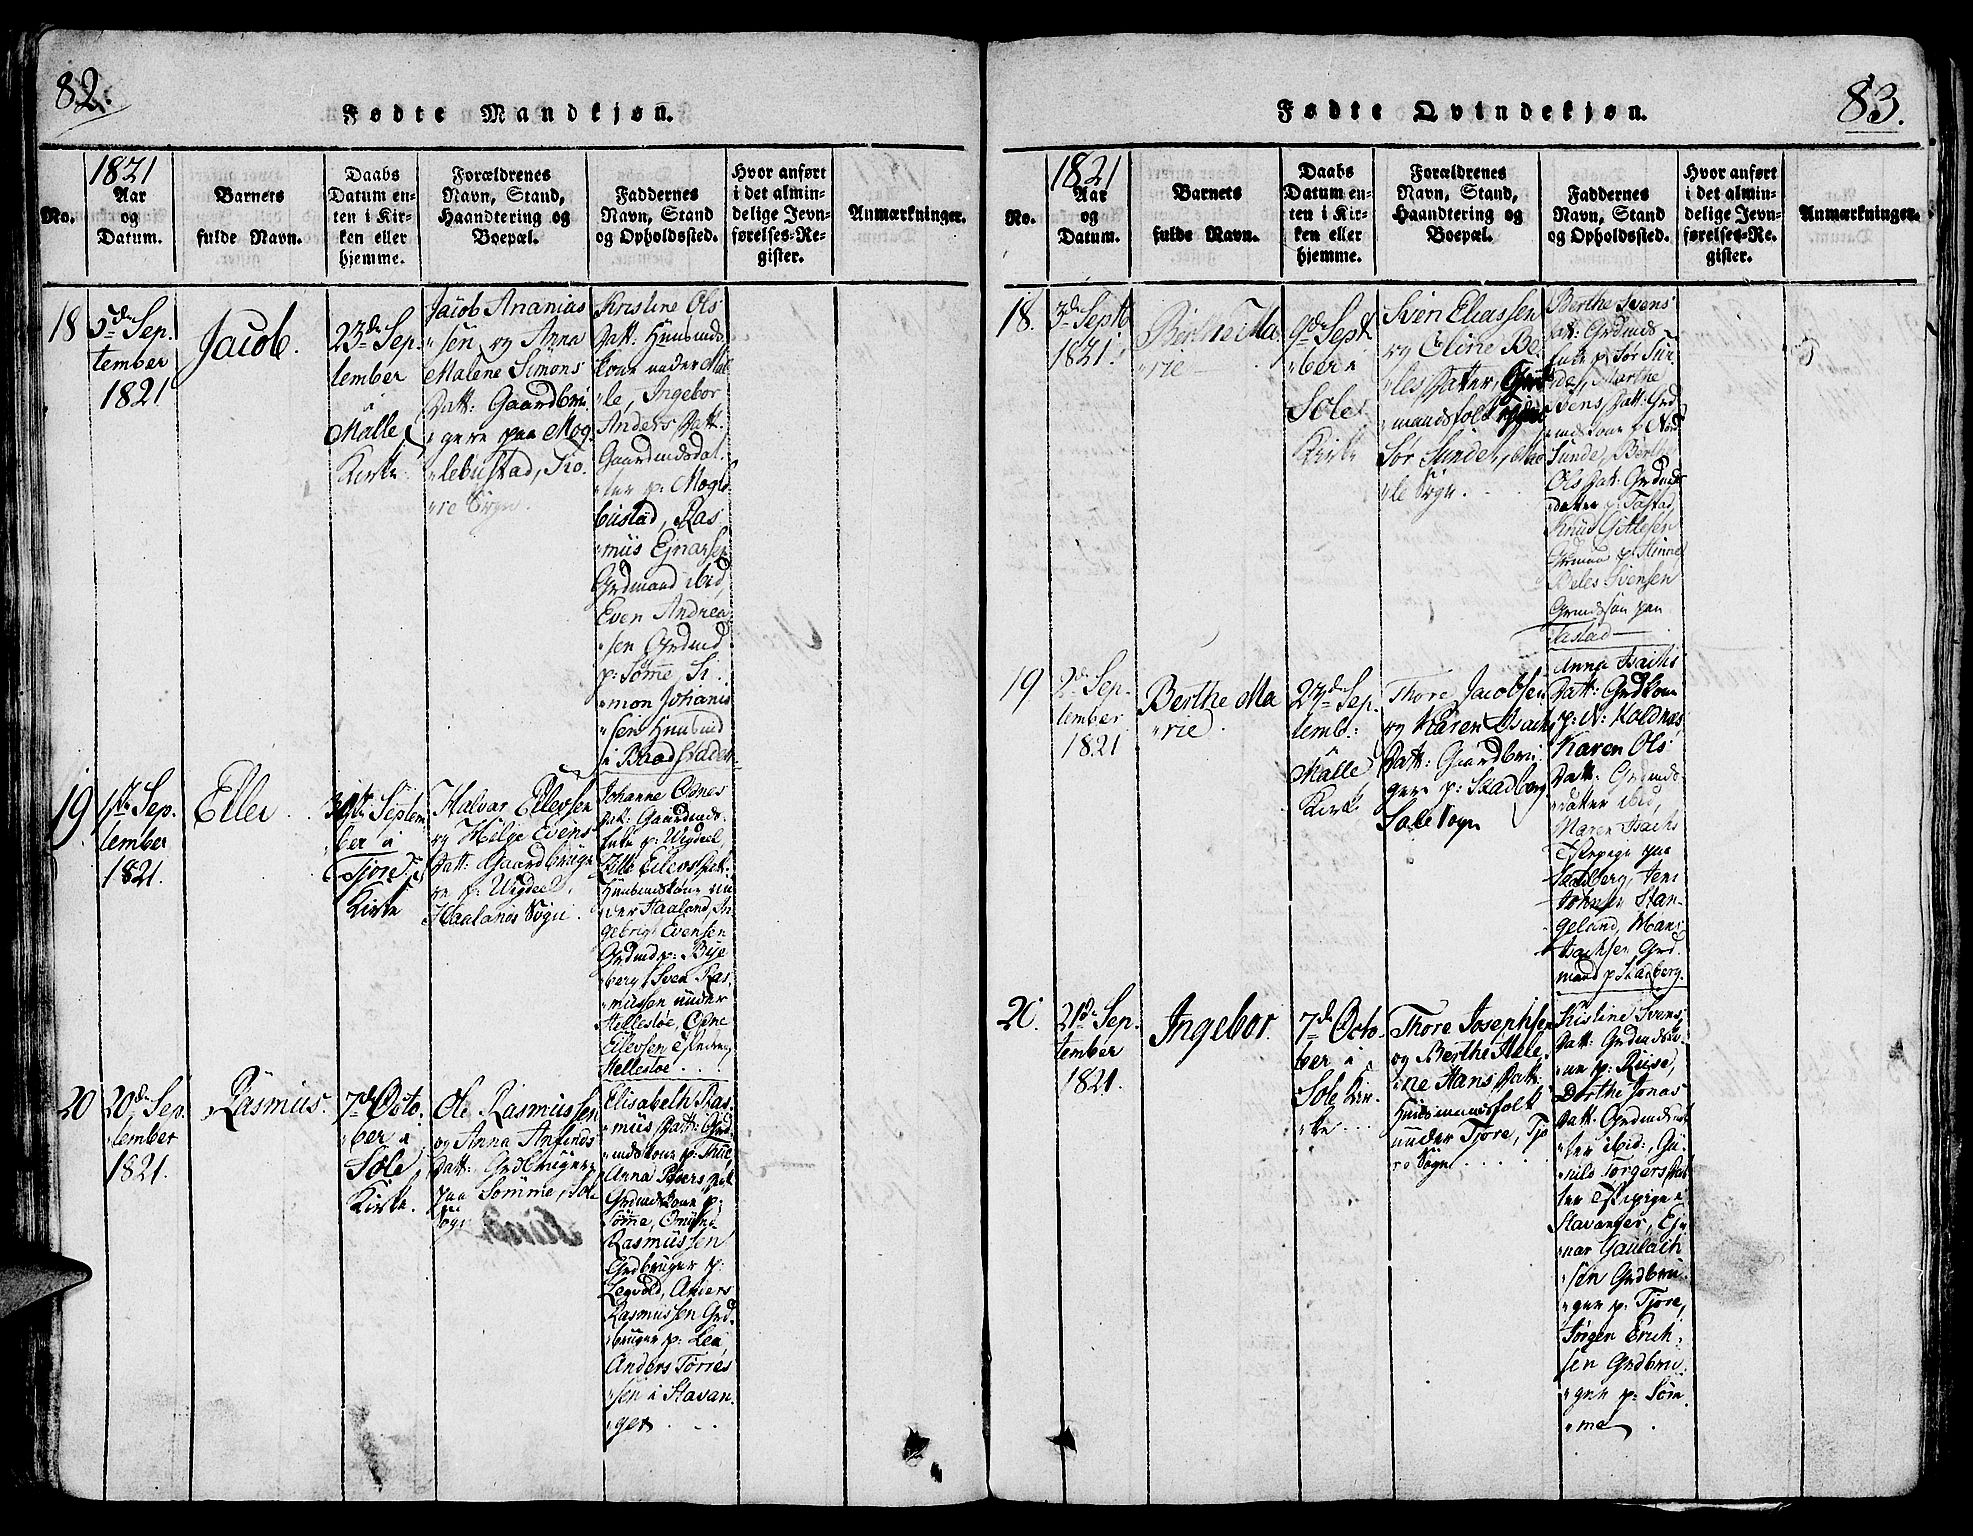 82.
Fødte Mandkjøn.
No.
1821
Aar
og
Datum.
Barnets
fulde Navn.
Daabs
Datum en-
ten i Kir-
ken eller
hjemme.
Forældrenes
Navn, Stand,
Haandtering og
Boepæl.
Faddernes
Navn, Stand
og Opholdssted.
Hvor anført
i det almin-
delige Jevn-
førelses-Re-
gister.
Anmærkninger.
18
5de Sep-
tember
1821
Jacob.
23de Sep-
tember
i
Malle
Kirke
Jacob Ananias
"sen og Anna
Malene Simons
Datt: Gaardbru
"gere paa Mog
"lebustad, Tio
"re Sogn.
Kristine Ols
Datt: Huusmds
kone under Mal
"le, Ingebor
Anders Datt.
Gaardmdsdat
"ter p: Mogle
bustad, Ras
"mus Ejnarsen
Grdmand ibid,
Even Andrea
"sen Grdmd
p: Sømme, Si
"mon Johanis
"sen Huusmd
i Baadstaden
19
1te Sep-
tember
1821.
Ellev
30te Septem
"ber i
Tjore
Kirke
Halvar Ellevsen
og Helge Evens
Datt: Gaardbruge
re p: Wigdeel,
Haalands Sogn.
Johanne Osnes
Datt: Gaardmds.
Enke p: Wigdeel,
Eilevs Datt:
Huusmdskone un
"der Haaland, In
gebrigt Evensen
Grdmd p: Bye
berg, Sven Ras,
"mussen under
Hellestøe, Osne
Eilevsen
Hellestøe...
20
20de Sep-
tember
1821.
Rasmus.
7de Octo.
"ber i
Sole
Kirke.
Ole Rasmussen
og Anna Anfinds
Datt: Grdbrugere
paa Sømme, Sole
Sogn
Elisabeth Ras,
"mus Datt: Grd,
"mdskone p:
Anna Peders Datt
Grdmdskone p:
Sømme,
Rasmussen
Grdbruger p:
Legvold,
Rasmussen Grd,
"bruger p: Lea,
Anders Torres
"sen i Stavan.
"ger. . .
83.
Fødte Qvindekjøn.
No.
1821
Aar
og
Datum.
Barnets
fulde Navn.
Daabs
Datum en-
ten i Kir-
ken eller
hjemme.
Forældrenes
Navn, Stand,
Haandtering og
Boepæl.
Faddernes
Navn, Stand
og Opholdssted.
Hvor anført
i det almin-
delige Jevn-
førelses-Re-
gister.
Anmærkninger.
18.
3de Septb
1821.
Birthe Ma
"rie
9de Sept
"ber i
Sole
Kirke
Sven Eliassen
og Eline Be
"les Datter,
"mandsfolk
Sør Sunde, Ma
"le Sogn. . .
Berthe Svens
Datt: Grdmds
Enke p: Sør Sun
de, Marthe
Svens Datt: Grd
"mdskone p: Nord
Sunde, Berthe
Ols Datt: Grdmds
datter p: Tastad,
Knud Gittlesen
Grdmand p: Hinne
Beles Svensen
Grmdssøn paa
Tastad
19
2de Sep-
tember
1821
Berthe Ma
"rie.
27de Sep-
temb:
i
Malle
Kirke
Thore Jacobsen
og Karen Isachs
Datt: Gaardbru
gere p: Skadberg
Sole Sogn
Anna Isachs
Datt: Grdkone
p: N: Koldnæs,
Karen Ols
Datt: Grdmds.
datter ibid,
Maren Isachs
Tjstepige paa
Skadberg, Jens
Johnsen Stan-
geland, Mans
Isachsen Grd
mand p Skadberg.
20.
21de Sep-
tember
1821.
Ingebor.
7de Octo-
ber i
Sole Kir-
"ke . . .
Thore Josephsen
og Berthe Male,
"ne Hans Datt.
Huusmandsfolk
under Tjore, Tjo
re Sogn . . . .
Kristine Svens
Datt: Grdmdsko-
"ne p:
Dorthe Jonas
Datt: Grdmdsdat
"ter ibid:, Gu
"nild Torgers Dat
ter Tjstepige i
Stavanger, Ej
"nar Gaulach
"sen Grdbru
"ger p: Tjore,
Jørgen Erich-
sen Grdbru
"ger p: Søm
"me